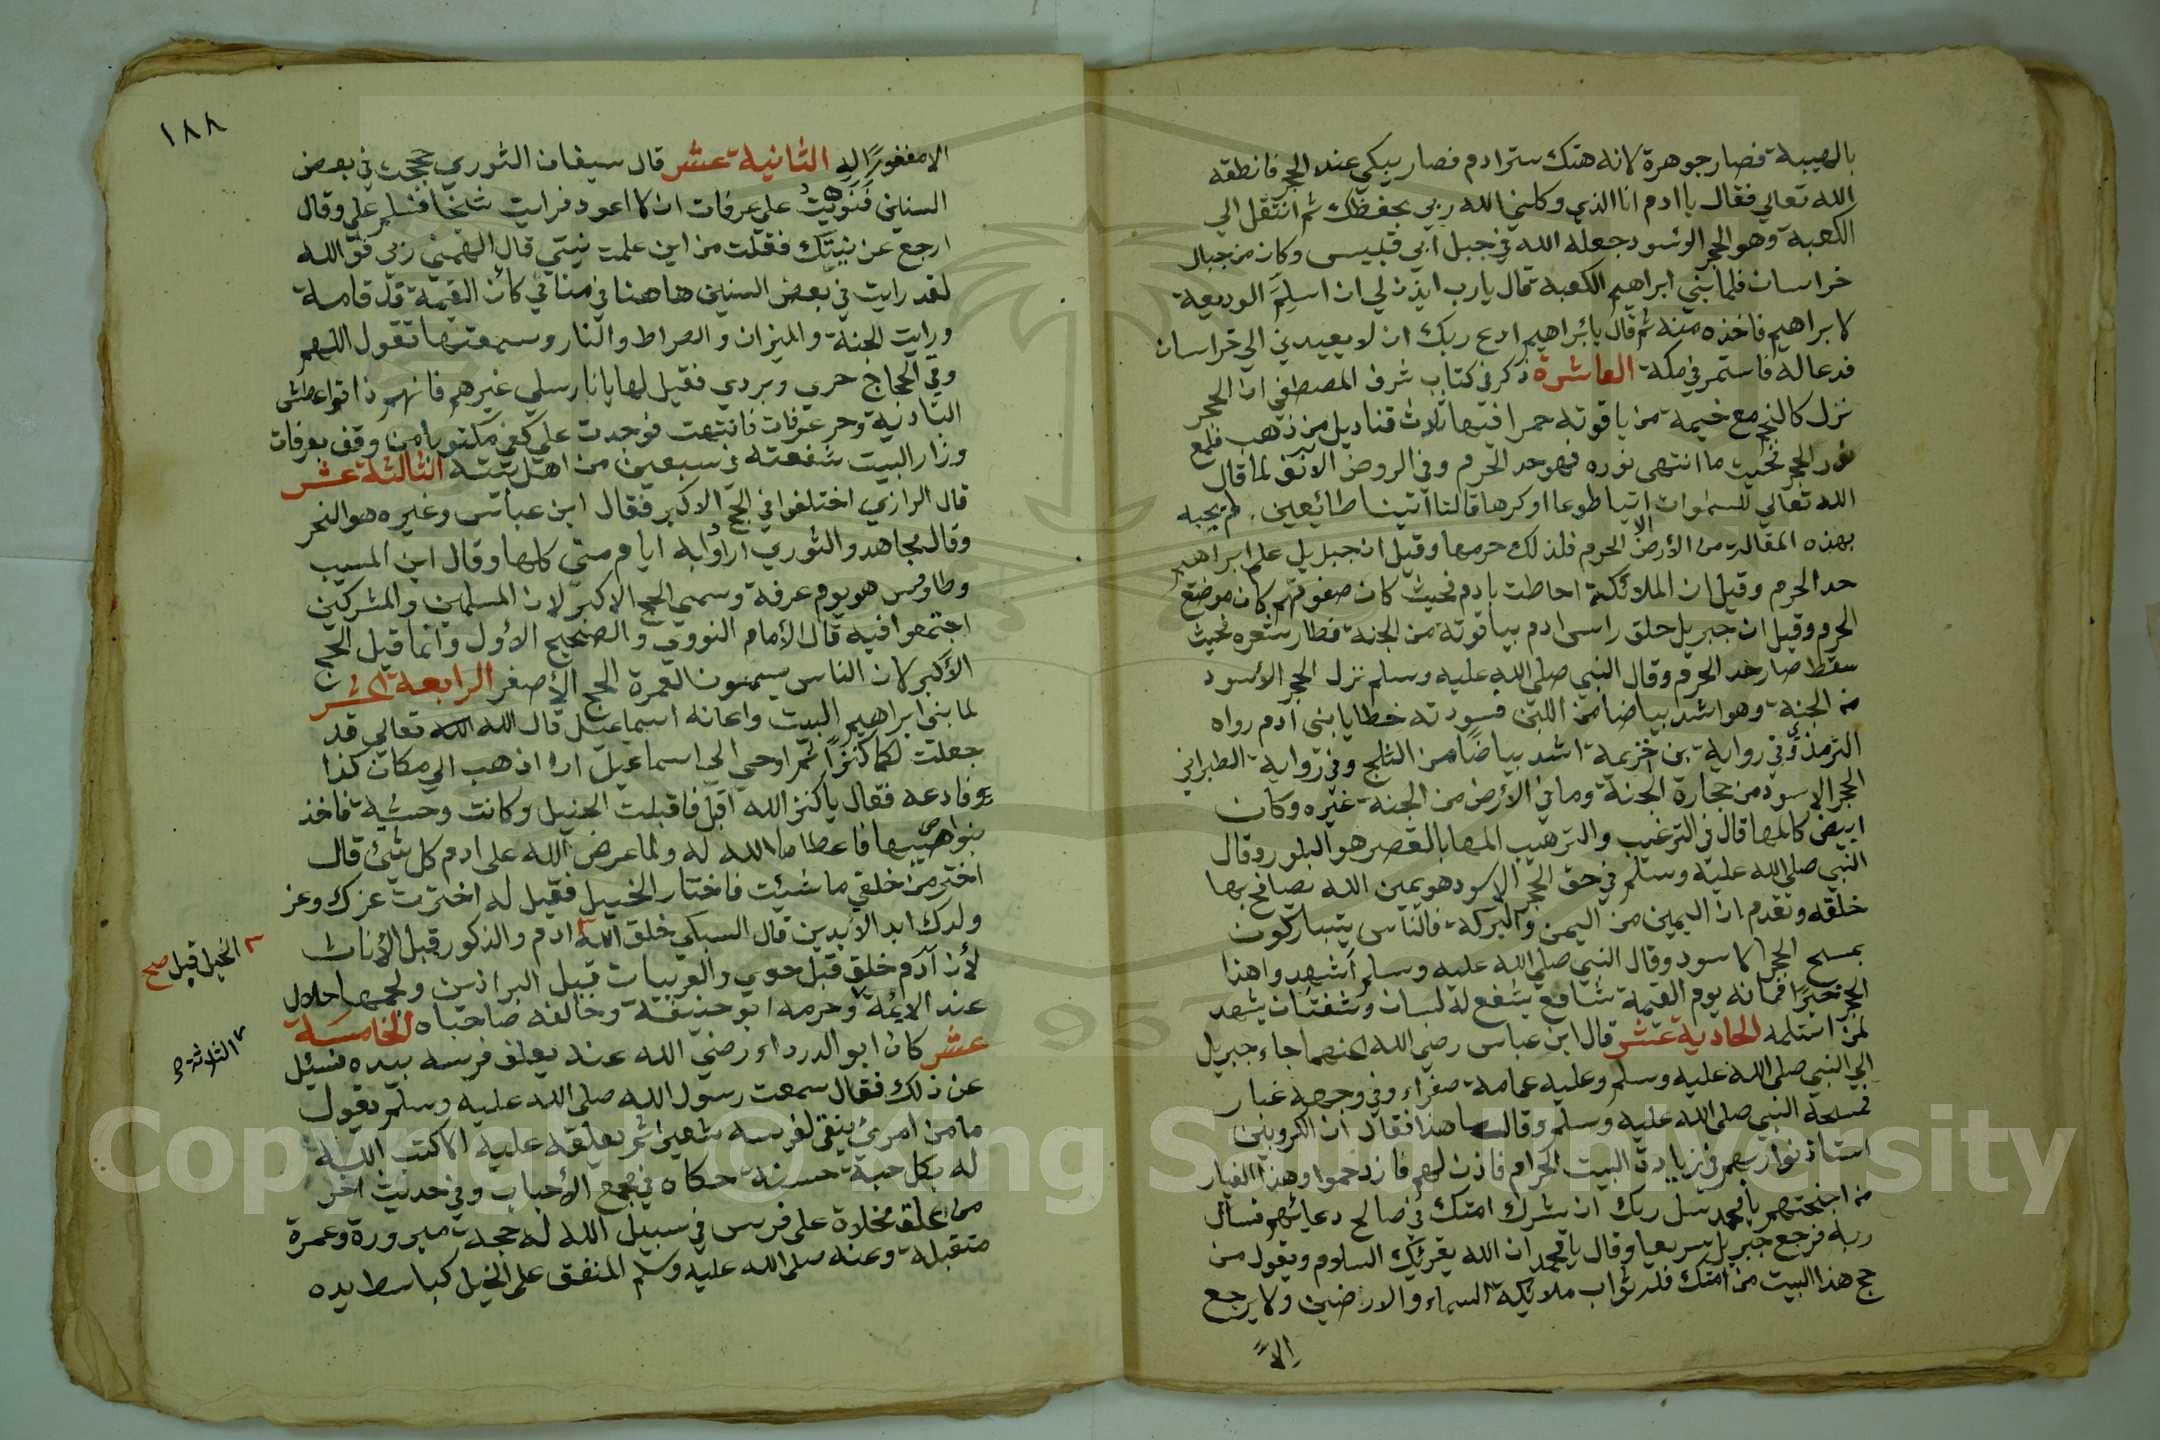 بالهيبة فصار جوهرة لانه هتك ستر ادم فصار يبكي عند الحجر فانطقه
الله تعالي فقال يا ادم انا الذي وكلني الله ربي بحفظك ثم انتقل الي
الكعبة وهو الحجر الاسود جعله الله في جبل ابي قبيس وكان من جبال
خراسان فلما بني ابراهيم الكعبة قال يارب ايذن لي ان اسلم الوديعة
لابراهيم فاخذه منه ثم قال يا ابراهيم ادع ربك ان لا يعيدني الي خراسان
فدعا له فاستمر في مكة العاشرة ذكر في كتاب شرف المصطفي ان الحجر
نزل كالنجم مع خيمة من ياقوته حمرا فيها ثلاث قناديل من ذهب فلمع
نور الحجر فحيث ما انتهي نوره فهو حد الحرم وفي الروض الانف لما قال
الله تعالي للسموات اتيا طوعا او كرها قالتا اتينا طائعين لم يجبه
بهذه المقالة من الأرض الا الحرم فلذلك حرمها وقيل ان جبريل علم ابراهيم
حد الحرم وقيل ان الملائكة احاطت بادم فحيث كان صفوفهم كان موضع
الحرم وقيل ان جبريل حلق راس ادم بياقوتة من الجنة فطار شعره فحيث
سقط صار حد الحرم وقال النبي صلي الله عليه وسلم نزل الحجر الأسود
من الجنة وهو اشد بياضا من اللبن فسودته خطايا بني ادم رواه
الترمذي وفي رواية بن خزيمة اشد بياضا من الثلج وفي رواية الطبراني
الحجر الاسود من حجارة الجنة وما في الأرض من الجنة غيره وكان
ابيض كالمها قال في الترغيب والترهيب المها بالقصر هو البلور وقال
النبي صلي الله عليه وسلم في حق الحجر الاسود هو يمين الله يصافح بها
خلقه وتقدم ان اليمين من اليمن والبركة فالناس يتباركون
بمسح الحجر الاسود وقال النبي صلي الله عليه وسلم أشهدوا هذا
الحجر خيرا فانه يوم القيمة شافع يشفع له لسان وشفتان يشهد
لمن استلمه الحادية عشر قال ابن عباس رضي الله عنهما جاء جبريل
الي النبي صلي الله عليه وسلم وعليه عمامة صفراء وفي وجهه غبار
فمسحه النبي صلي الله عليه وسلم وقال ما هذا فقال ان الكروبين
استاذنوا ربهم في زيادة البيت الحرام فاذن لهم فازدحموا وهذا الغبار
من اجنحتهم يا محمد سل ربك ان يشرك امتك في صالح دعائهم فسال
ربه فرجع جبريل سريعا وقال يا محمد ان الله يقرئك السلام ويقول من
حج هذا البيت من امتك فله ثواب ملائكة السماء والارضين ولا يرجع
الا
١٨٨
الا مغفورا له الثانية عشر قال سيفان الثوري حججت في بعض
السنين فنويت علي عرفات ان لا اعود فرايت شيخا فسلم علي وقال
ارجع عن نيتك فقلت من اين علمت نيتي قال الهمني ربي فو الله
لقد رايت في بعض السنين هاهنا في منامي كأن القيمة قد قامة
ورايت الجنة والميزان والصراط والنار وسمعتها تقول اللهم
وقي الحجاج حري وبردي فقيل لها يا نار سلي غيرهم فانهم ذاقوا عطش
البادية وحر عرفات فانتبهت فوجدت علي كفي مكتوبا من وقف بعرفات
وزار البيت شفعته في سبعين من اهل بيته الثالثة عشر
قال الرازي اختلفوا في الحج الاكبر فقال ابن عباس وغيره هو النحر
وقال مجاهد والثوري ارادوا به ايام مني كلها وقال ابن المسيب
وطاوس هو يوم عرفة وسمي الحج الاكبر لان المسلمين والمشركين
اجتمعوا فيه قال الأمام النووي والصحيح الأول وانما قيل الحج
الأكبر لان الناس يسمون العمرة الحج الأصغر الرابعة عشر
لما بني ابراهيم البيت واعانه اسماعيل قال الله تعالي قد
جعلت لكما كنزا ثم اوحي الي اسماعيل ان اذهب الي مكان كذا
وفادعه فقال يا كنز الله اقبل فاقبلت الخيل وكانت وحشية فاخذ
بنواصيها فاعطاها الله له ولما عرض الله علي ادم كل شيئ قال
اختر من خلقي ما شيئت فاختار الخيل فقيل له اخترت عزك وعز
ولدك ابد الأبدين قال السبكي خلق الله ادم والذكور قبل الأناث
لأن آدم خلق قبل حوي والعربيات قبل البراذين ولحمها حلال
عند الايمة وحرمه ابو حنيفة وخالفه صاحباه الخامسة
عشر كان ابو الدرداء رضي الله عنه يعلف فرسه بيده فسيل
عن ذلك فقال سمعت رسول الله صلي الله عليه وسلم يقول
ما من امرئ ينقي لفرسه شعيرا ثم يعلقه عليه الا كتب الله
له بكل حبة حسنة حكاه في مجمع الأحباب وفي حديث اخر
من علق مخلاة علي فرس في سبيل الله له حجة مبرورة وعمرة
متقبلة وعنه صلي الله عليه وسلم المنفق علي الخيل كباسط يده
الخيل قبل صح
الثلاثة